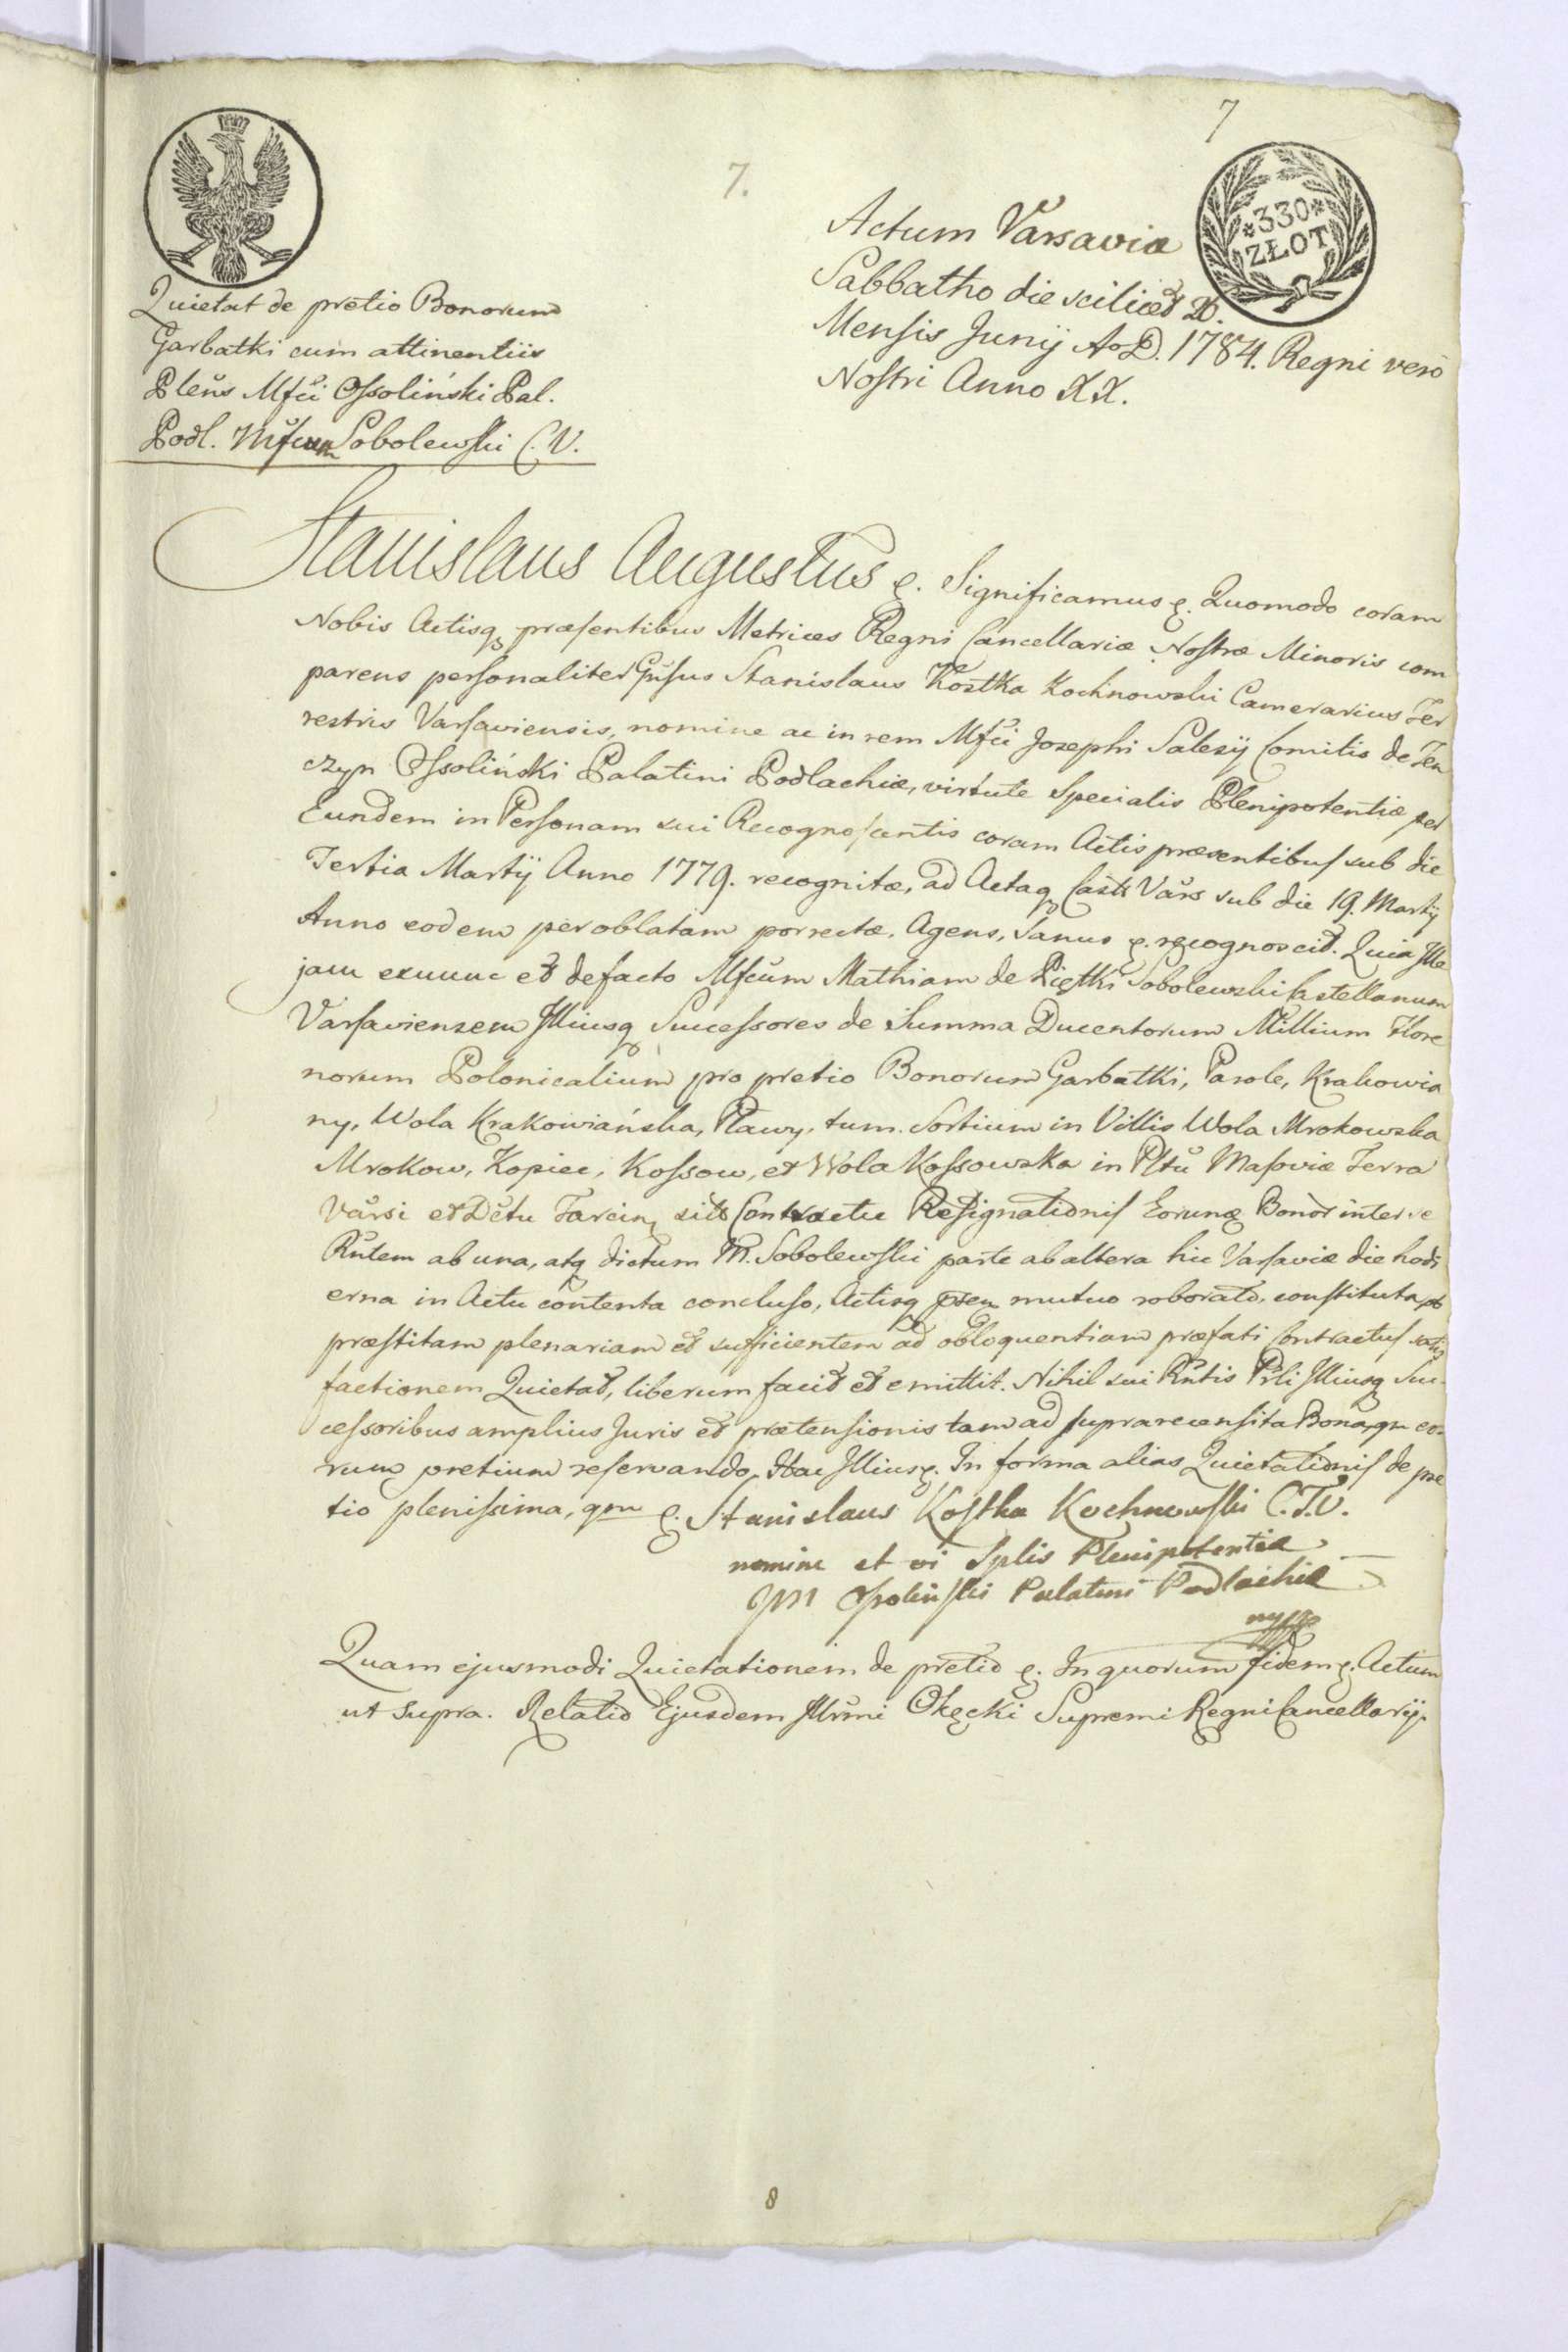 7
7.
*330*
ZŁOT
Actum Varsaviæ
Sabbatho die scilicet
Mensis Junij Ao D. 1784. Regni vero
Nostri Anno XX.
Quietat de pretio Bonorum
Garbatki cum attinentiis
Plens Mfci Ossoliński Pal.
Podl. Mfcum Sobolewski C. V.
Stanislaus Augustus &. Significamus &. Quomodo coram
Nobis Actisq præsentibus Metrices Regni Cancellariæ Nostræ Minoris com
parens personaliter Gnsus Stanislaus Kostka Kochnowski Camerarius Ter
restris Varsaviensis, nomine ac in rem Mfci Josephi Salezij Comitis de Ten
czyn Ossoliński Palatini Podlachiæ, virtute specialis Plenipotentiæ per
Eundem in Personam sui Recognoscentis coram Actis præsentibus sub die
Tertia Martij Anno 1779. recognitæ, ad Actaq Casts Vars sub die 19. Martij
Anno eodem per oblatam porrectæ. Agens, sanus &. recognoscit. Quia Ille
jam exnunc et defacto Mfcum Mathiam de Piętki Sobolewski Castellanum
Varsaviensem Illiusq Successores de Summa Ducentorum Millium Flore
norum Polonicalium pro pretio Bonorum Garbatki, Parole, Krakowia
ny, Wola Krakowiańska, Pławy, tum Sortium in Villis Wola Mrokowska
Mrokow, Kopiec, Kossow, et Wola Kossowska in Pltu Masoviæ Terra
Varsi et Dctu Tarcin sitis Contractu Resignationis Eorunq Bonor inter se
Rntem ab una, atq dictum M. Sobolewski parte ab altera hic Varsaviæ die hodi
erna in Actu contenta concluso, Actisq mutuo roborato, constituta ob
præstitam plenariam et sufficientem ad obloquentiam præfati Contractus satis
factionem Quietat, liberum facit et emittit. Nihil sui Rntis Prli Illiusq Suc-
cessoribus amplius Juris et prætensionis tam ad suprarecensita Bona, qm eo=
rum pretium reservando. Hac Illius &. In forma alias Quietationis de pre
tio plenissima, qm &. Stanislaus Kostka Kochnowski C.T.V.
nomine et vi Splis Plenipotentiæ
JM Ossoliński Palatini Podlachiæ
Quam ejusmodi Quietationem de pretio &. In quorum fidem &. Actum
ut supra. Relatio Ejusdem Illrmi Okęcki Supremi Regni Cancellarij.
8